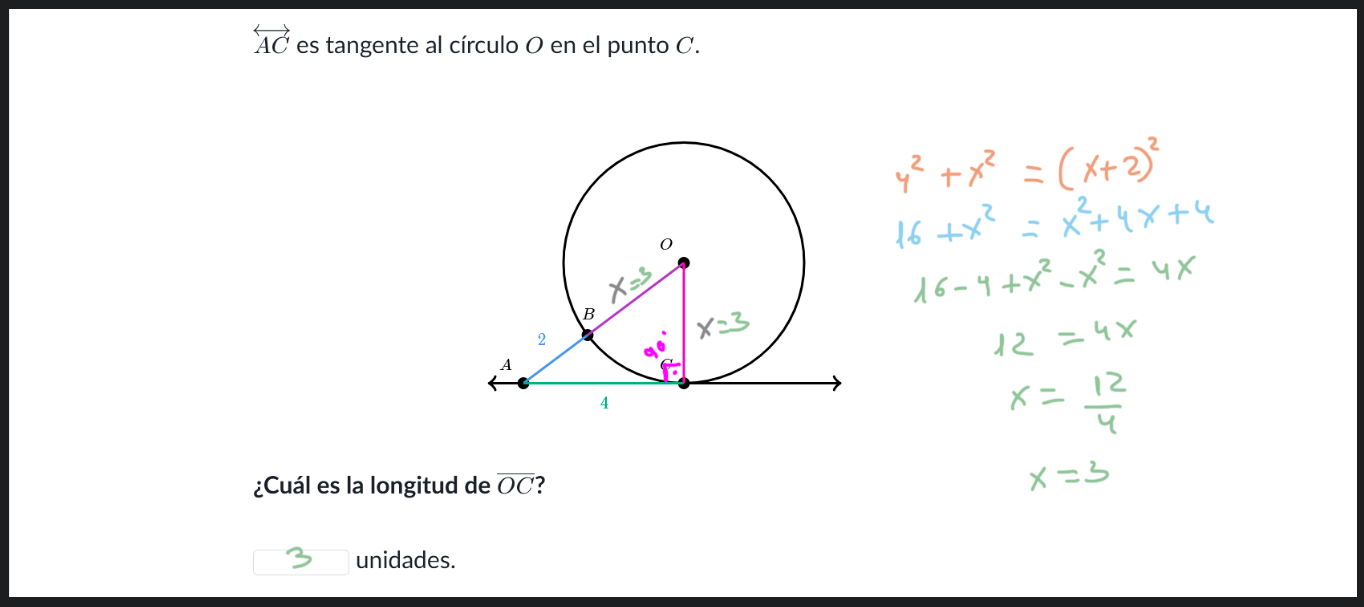 AC es tangente al círculo O en el punto C.
O
x=3
B
x=3
2
90°
A
C
4
4² + x² = (x+2)²
16 + x² = x² + 4x + 4
16 - 4 + x² - x² = 4x
12 = 4x
x = 12/4
x = 3
¿Cuál es la longitud de OC?
3 unidades.